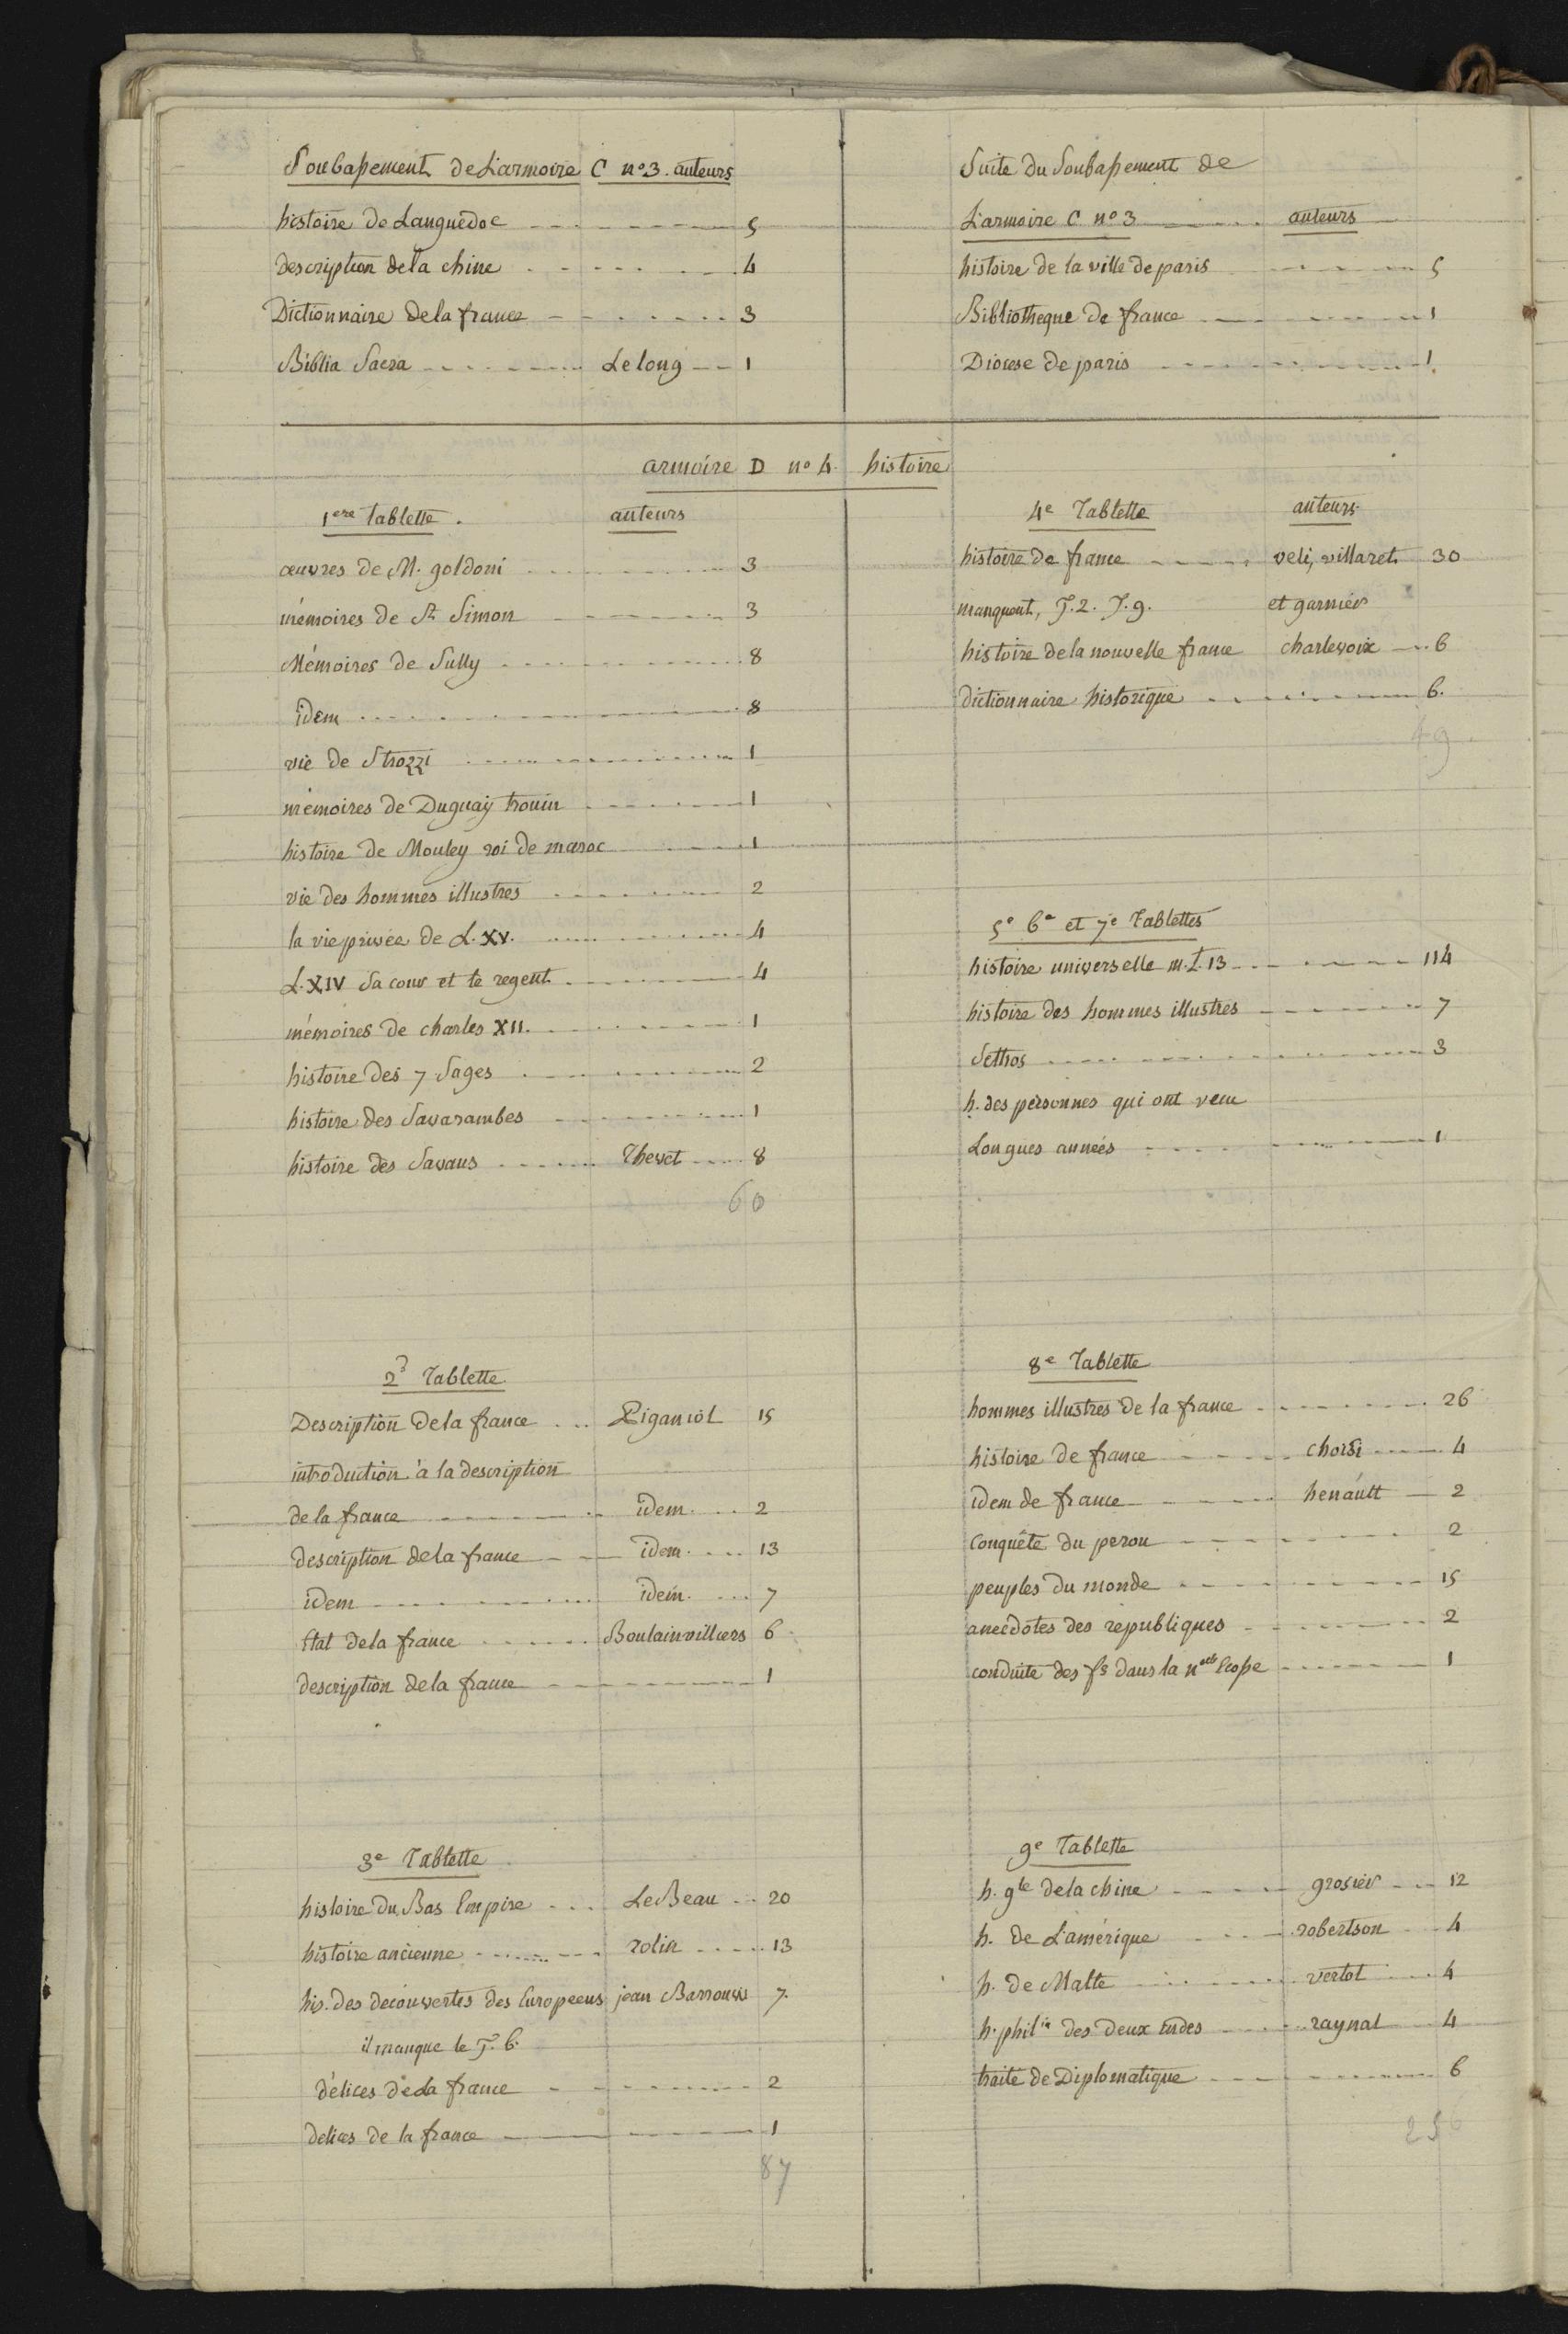 Soubassement de L'armoire C n° 3. auteurs
histoire de Languedoc 5
Description de la chine 4
Dictionnaire de la france 3
Biblia Sacra Le long 1
Suite du Soubassement de
L'armoire C. n° 3 auteurs
histoire de la ville de paris 5
Bibliotheque de france 1
Diocese de paris 1
armoire D n° 4. histoire
1ere tablette. auteurs
œuvres de M. goldoni 3
mémoires de St Simon 3
Mémoires de Sully 8
idem 8
vie de Strozzi 1
mémoires de Duguay trouin 1
histoire de Mouley roi de maroc 1
vie des hommes illustres 2
la vie privée de L. XV. 4
L. XIV Sa cour et le regent 4
mémoires de charles XII. 1
histoire des 7 Sages 2
histoire des Savarambes 1
histoire des Savans Thevet 8
60
2e Tablette
Description de la france Piganiol 15
introduction à la description
de la france idem 2
description de la france idem 13
idem idem 7
Etat de la france Boulainvilliers 6
description de la france 1
3e Tablette
histoire du Bas Empire Le Beau 20
histoire ancienne rolin 13
his. des decouvertes des Europeens jean Barrouws 7.
il manque le T. 6.
délices de La france 2
delices de la france 1
87
4e Tablette auteurs
histoire de france veli, villaret 30
manquent, T. 2. T. 9. et garnier
histoire de la nouvelle france charlevoix 6
dictionnaire historique 6.
49
5e 6e et 7e Tablettes
histoire universelle m. t. 13 114
histoire des hommes illustres 7
Sethos 3
h. des personnes qui ont vecu
Longues années 1
8e Tablette
hommes illustres de la france 26
histoire de france choisi 4
idem de france henault 2
Conquête du perou 2
peuples du monde 15
anecdotes des republiques 2
conduite des fs dans la nelle Ecosse 1
9e Tablette
h. gle de la chine grosier 12
h. de L'amérique robertson 4
h. de Malte vertot 4
h. philie des deux indes raynal 4
traité de Diplomatique 6
256